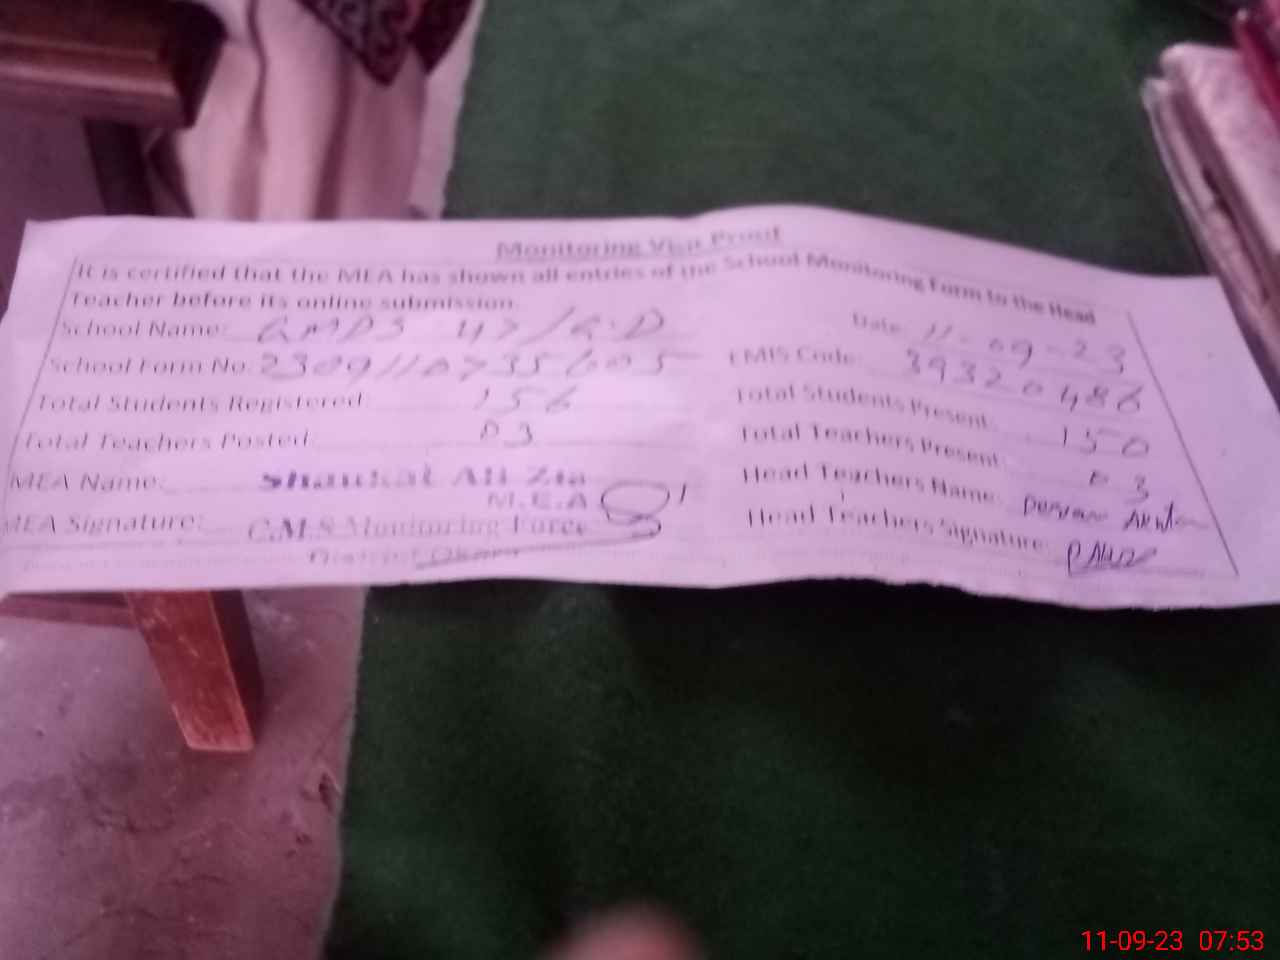 Monitoring Visit Proof
It is certified that the MEA has shown all entries of the School Monitoring Form to the Head
Teacher before its online submission.
School Name: GMPS 47/G.D Date: 11-09-23
School Form No. EMIS Code: 39320486
Total Students Registered: 156 Total Students Present: 150
Total Teachers Posted: 03 Total Teachers Present: 03
MEA Name: Shaukat Ali Zia Head Teachers Name:
M.E.A
MEA Signature: C.M.S Monitoring Force Head Teachers Signature:
District Okara
11-09-23 07:53